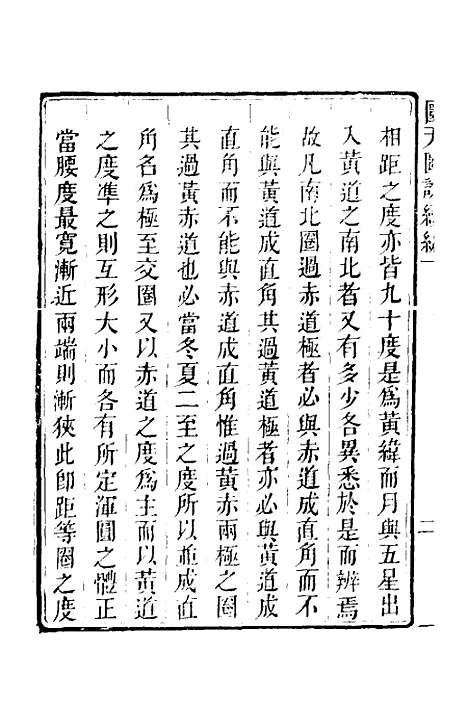 圜天圖說續編
二
相距之度亦皆九十度是爲黃緯而月與五星出
入黃道之南北者又有多少各異悉於是而辨焉
故凡南北圈過赤道極者必與赤道成直角而不
能與黃道成直角其過黃道極者亦必與黃道成
直角而不能與赤道成直角惟過黃赤兩極之圈
其過黃赤道也必當冬夏二至之度所以並成直
角名爲極至交圈又以赤道之度爲主而以黃道
之度準之則互形大小而各有所定渾圓之體正
當腰度最寬漸近兩端則漸狹此卽距等圈之度